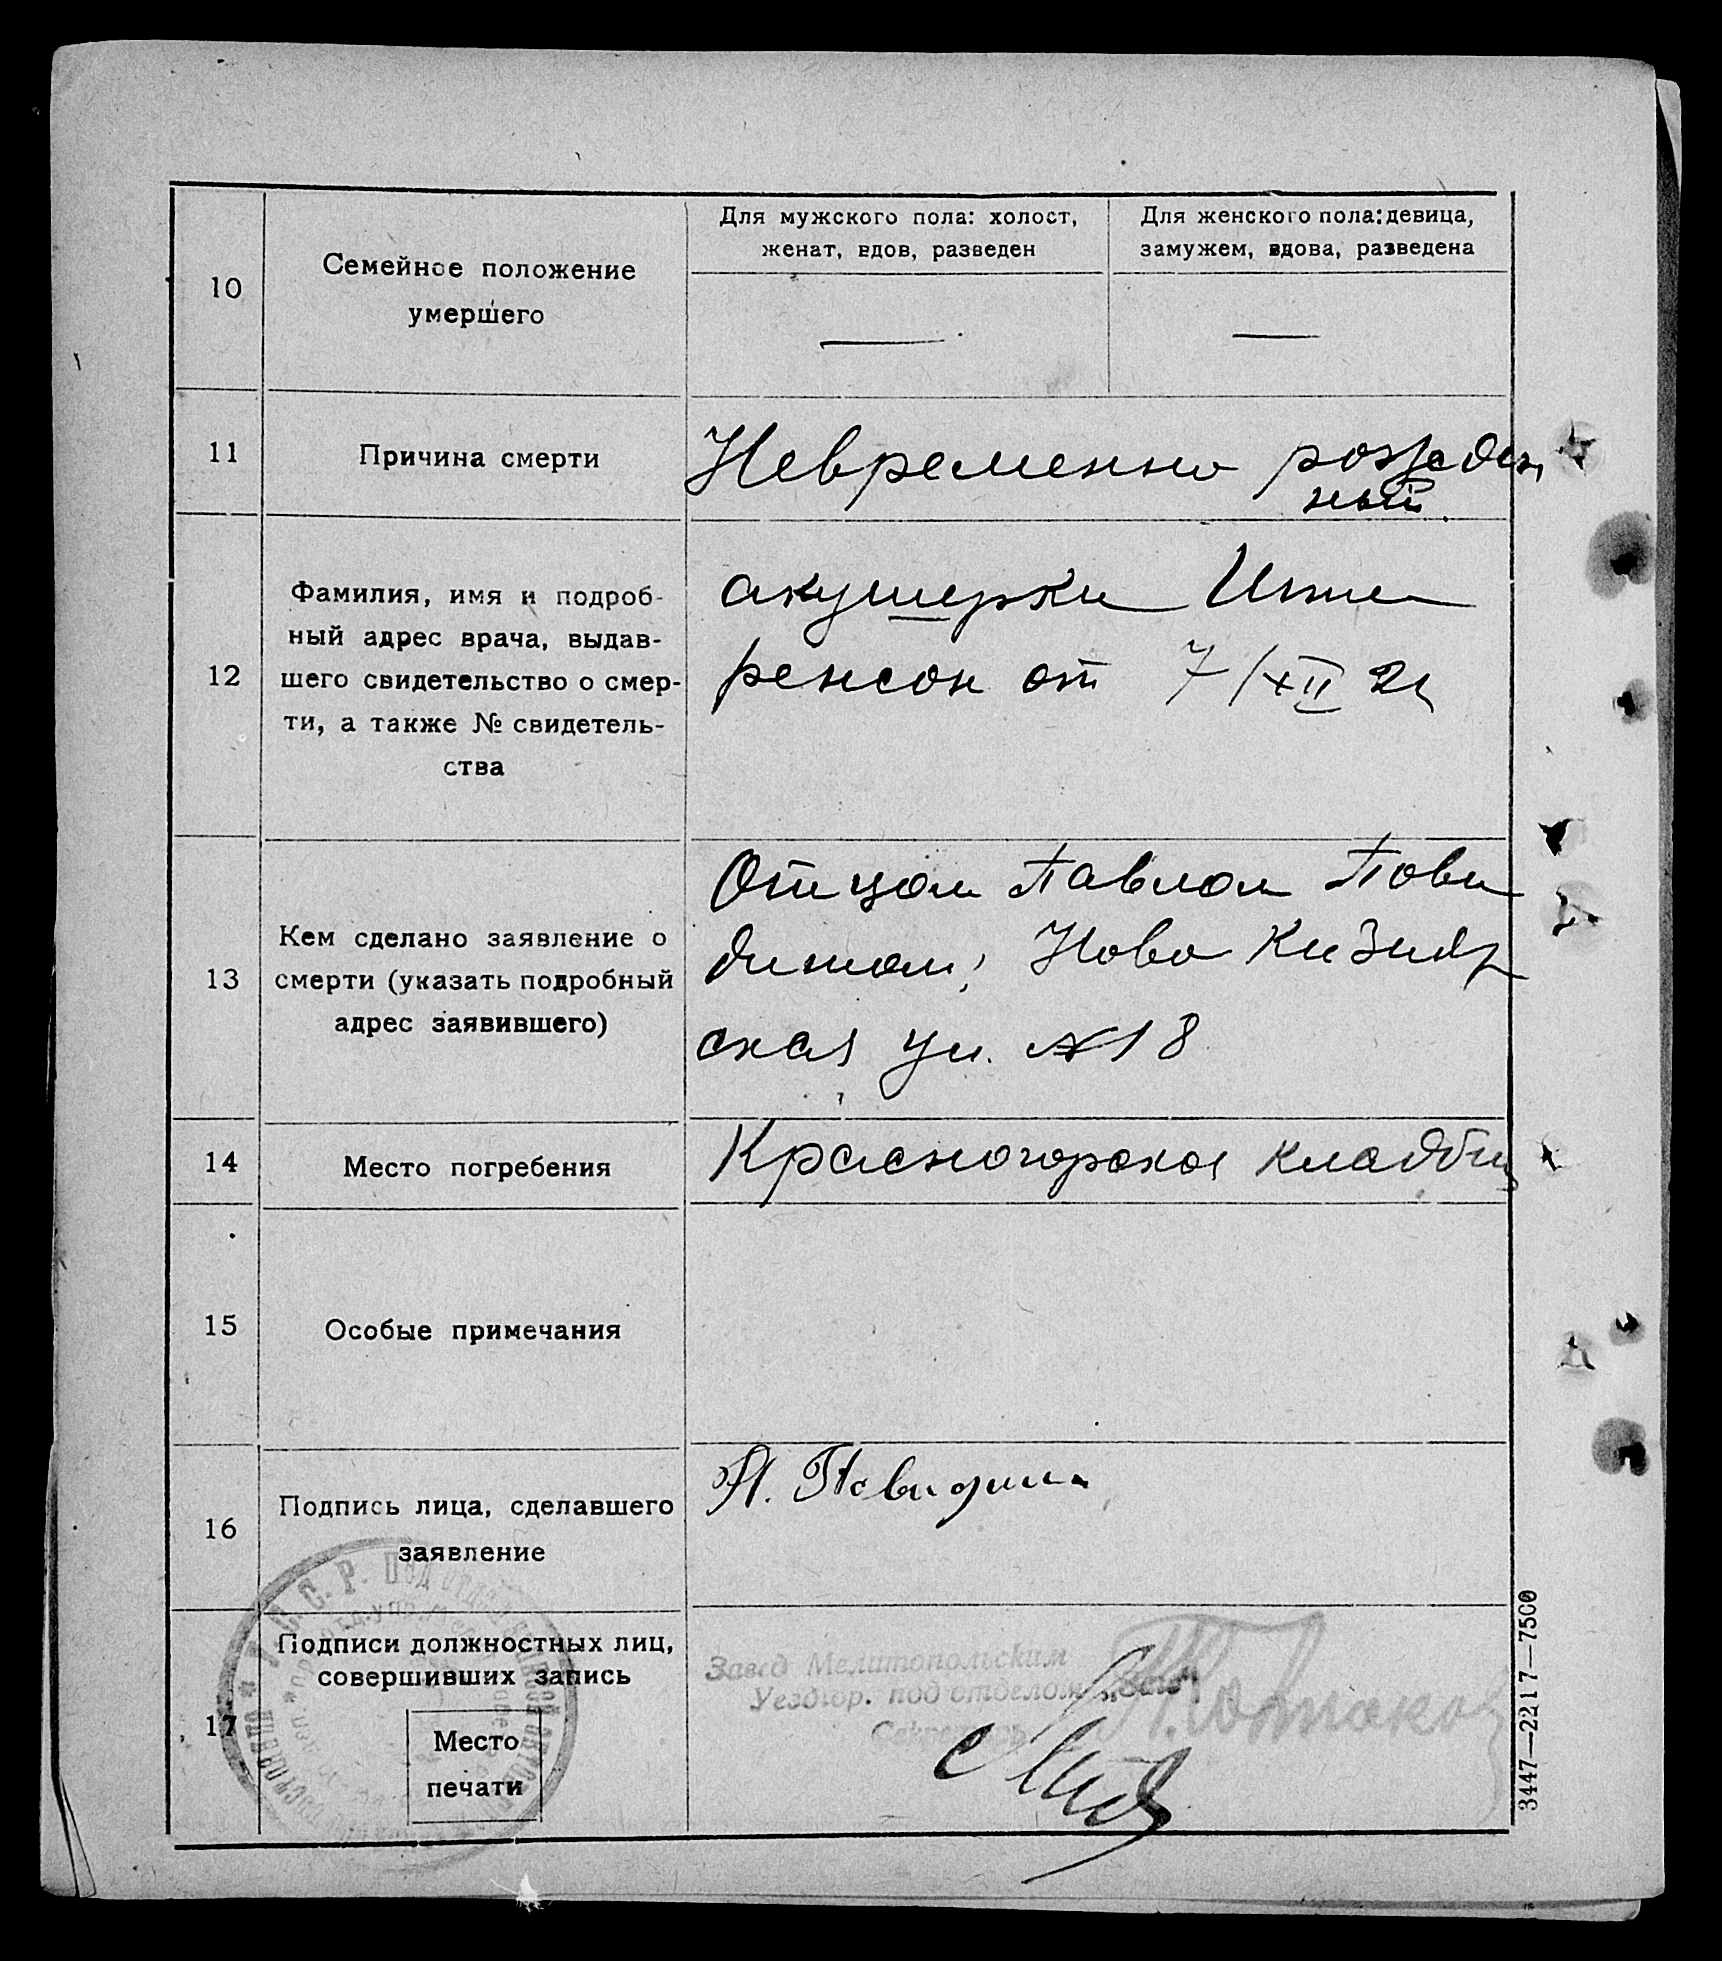 Для мужского пола: холост,
женат, вдов, разведен
Для женского пола: девица,
замужем, вдова, разведена
10
Семейное положение
умершего
11
Причина смерти
Невременно рожден
ный
12
Фамилия, имя и подроб-
ный адрес врача, выдав-
шего свидетельство о смер-
ти, а также № свидетель-
ства
акушерки
от 7/XII 21
13
Кем сделано заявление о
смерти (указать подробный
адрес заявившего)
Отцом Павлом Пови
дином, Ново Кизияр
ская ул. №18
14
Место погребения
Красногорское кладби
15
Особые примечания
16
Подпись лица, сделавшего
заявление
П. Повидин
17
Подписи должностных лиц,
совершивших запись
Место
печати
Завед Мелитопольским
Уездгор. под отделом
Секретарь
3447—2217—7500